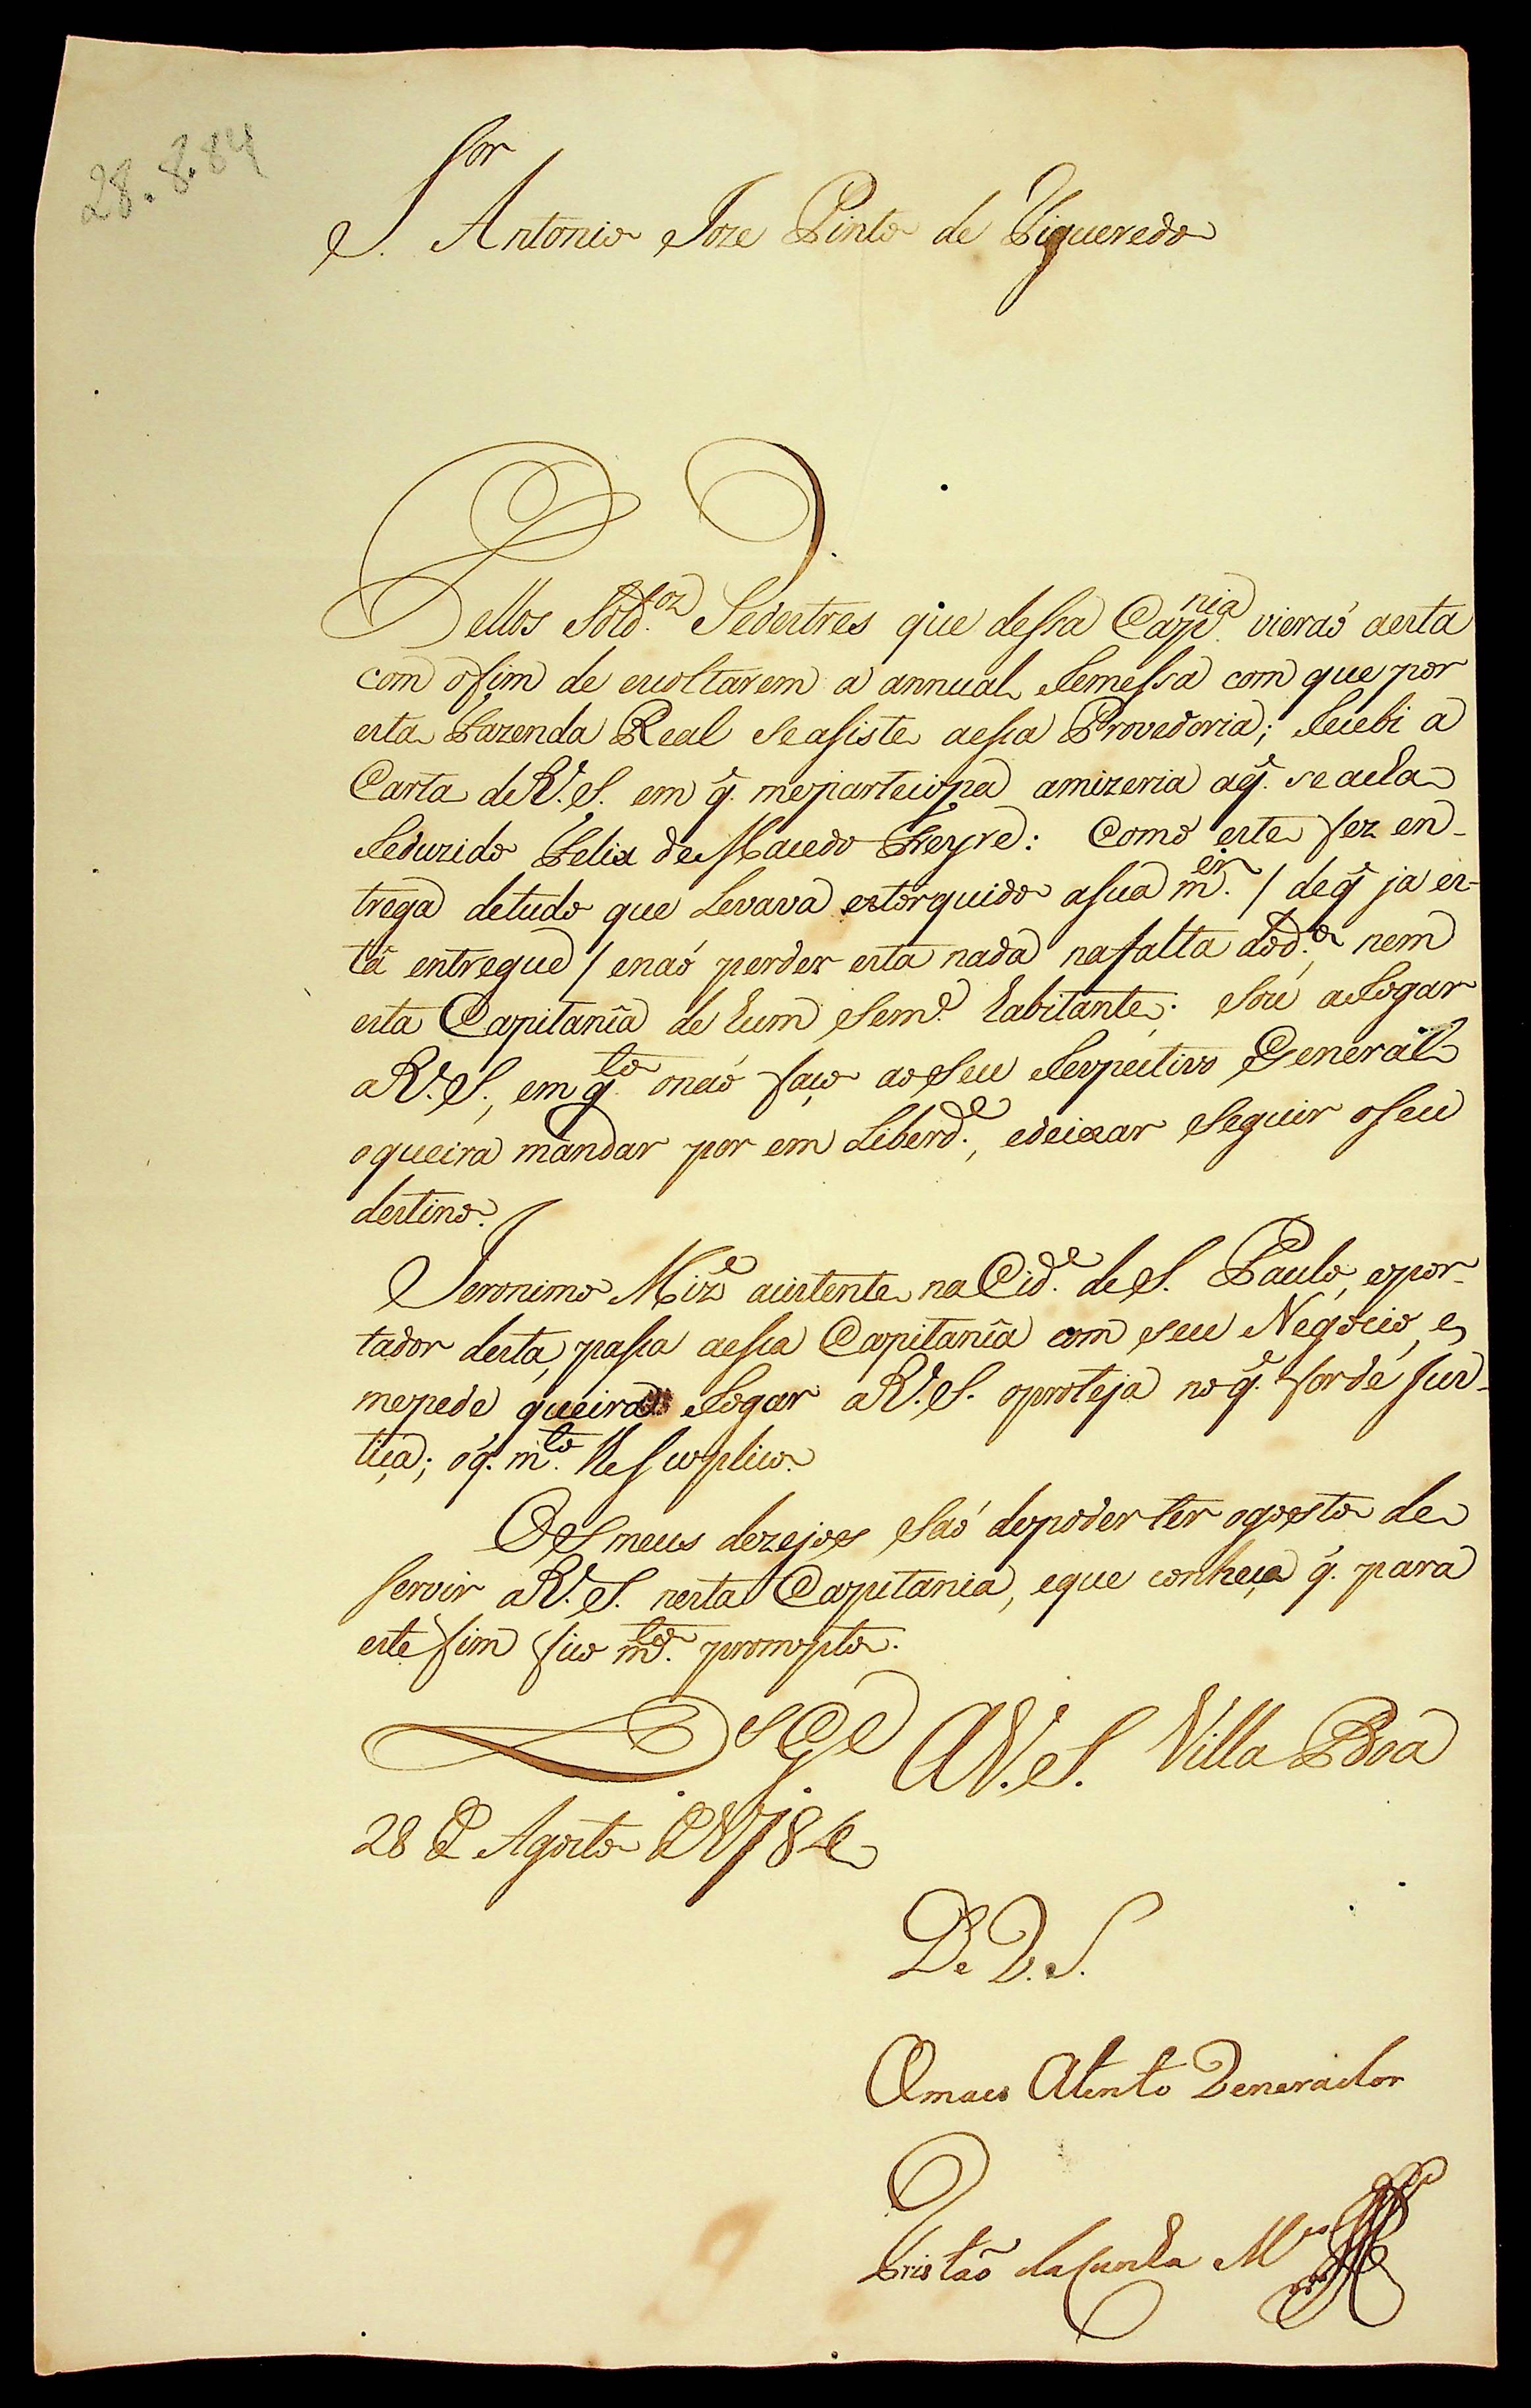 28.8.84
S.or Antonio Joze Pinto de Figueredo
Pellos Sold.os Pedestres que dessa Cap.nia vieraó aesta
com ofim de escoltarem a annual Remessa com que por
esta Fazenda Real seasiste aessa Provedoria; Recebi a
Carta deV.S. em q̃. meparteicipa amizeria aq̃. se acha
Reduzido Felix de Macedo Freyre: Como este fez en-
trega detudo que Levava extorquido asua m.er / deq̃ ja es-
tá entregue / enaó perder esta nada nafalta dod.o, nem
esta Capitanîa de hum Sem.e habitante; Sou aRogar
aV.S., em q.to onaó faço ao Seu Respectivo General
oqueira mandar por em Liberd.e, edeixar Seguir oSeu
destino.
Jeronimo Miz̃ asistente na Cid.e de S. Paulo, epor-
tador desta, passa aessa Capitanîa com seu Negocio, e
mepede queira Rogar aV.S. oproteja no q̃. for de Jus-
tiça; oq̃. m.to lheSuplico.
Os meus dezejos Saó depoder ter ogosto de
Servir aV.S. nesta Capitania, eque conheça q̃. para
este fim fico m.to prompto.
D.s G.e A V.S. Villa Boa
28 de Agosto de 1784
De V.S.
Omais Atento Venerador
Tristaõ daCunha M.es